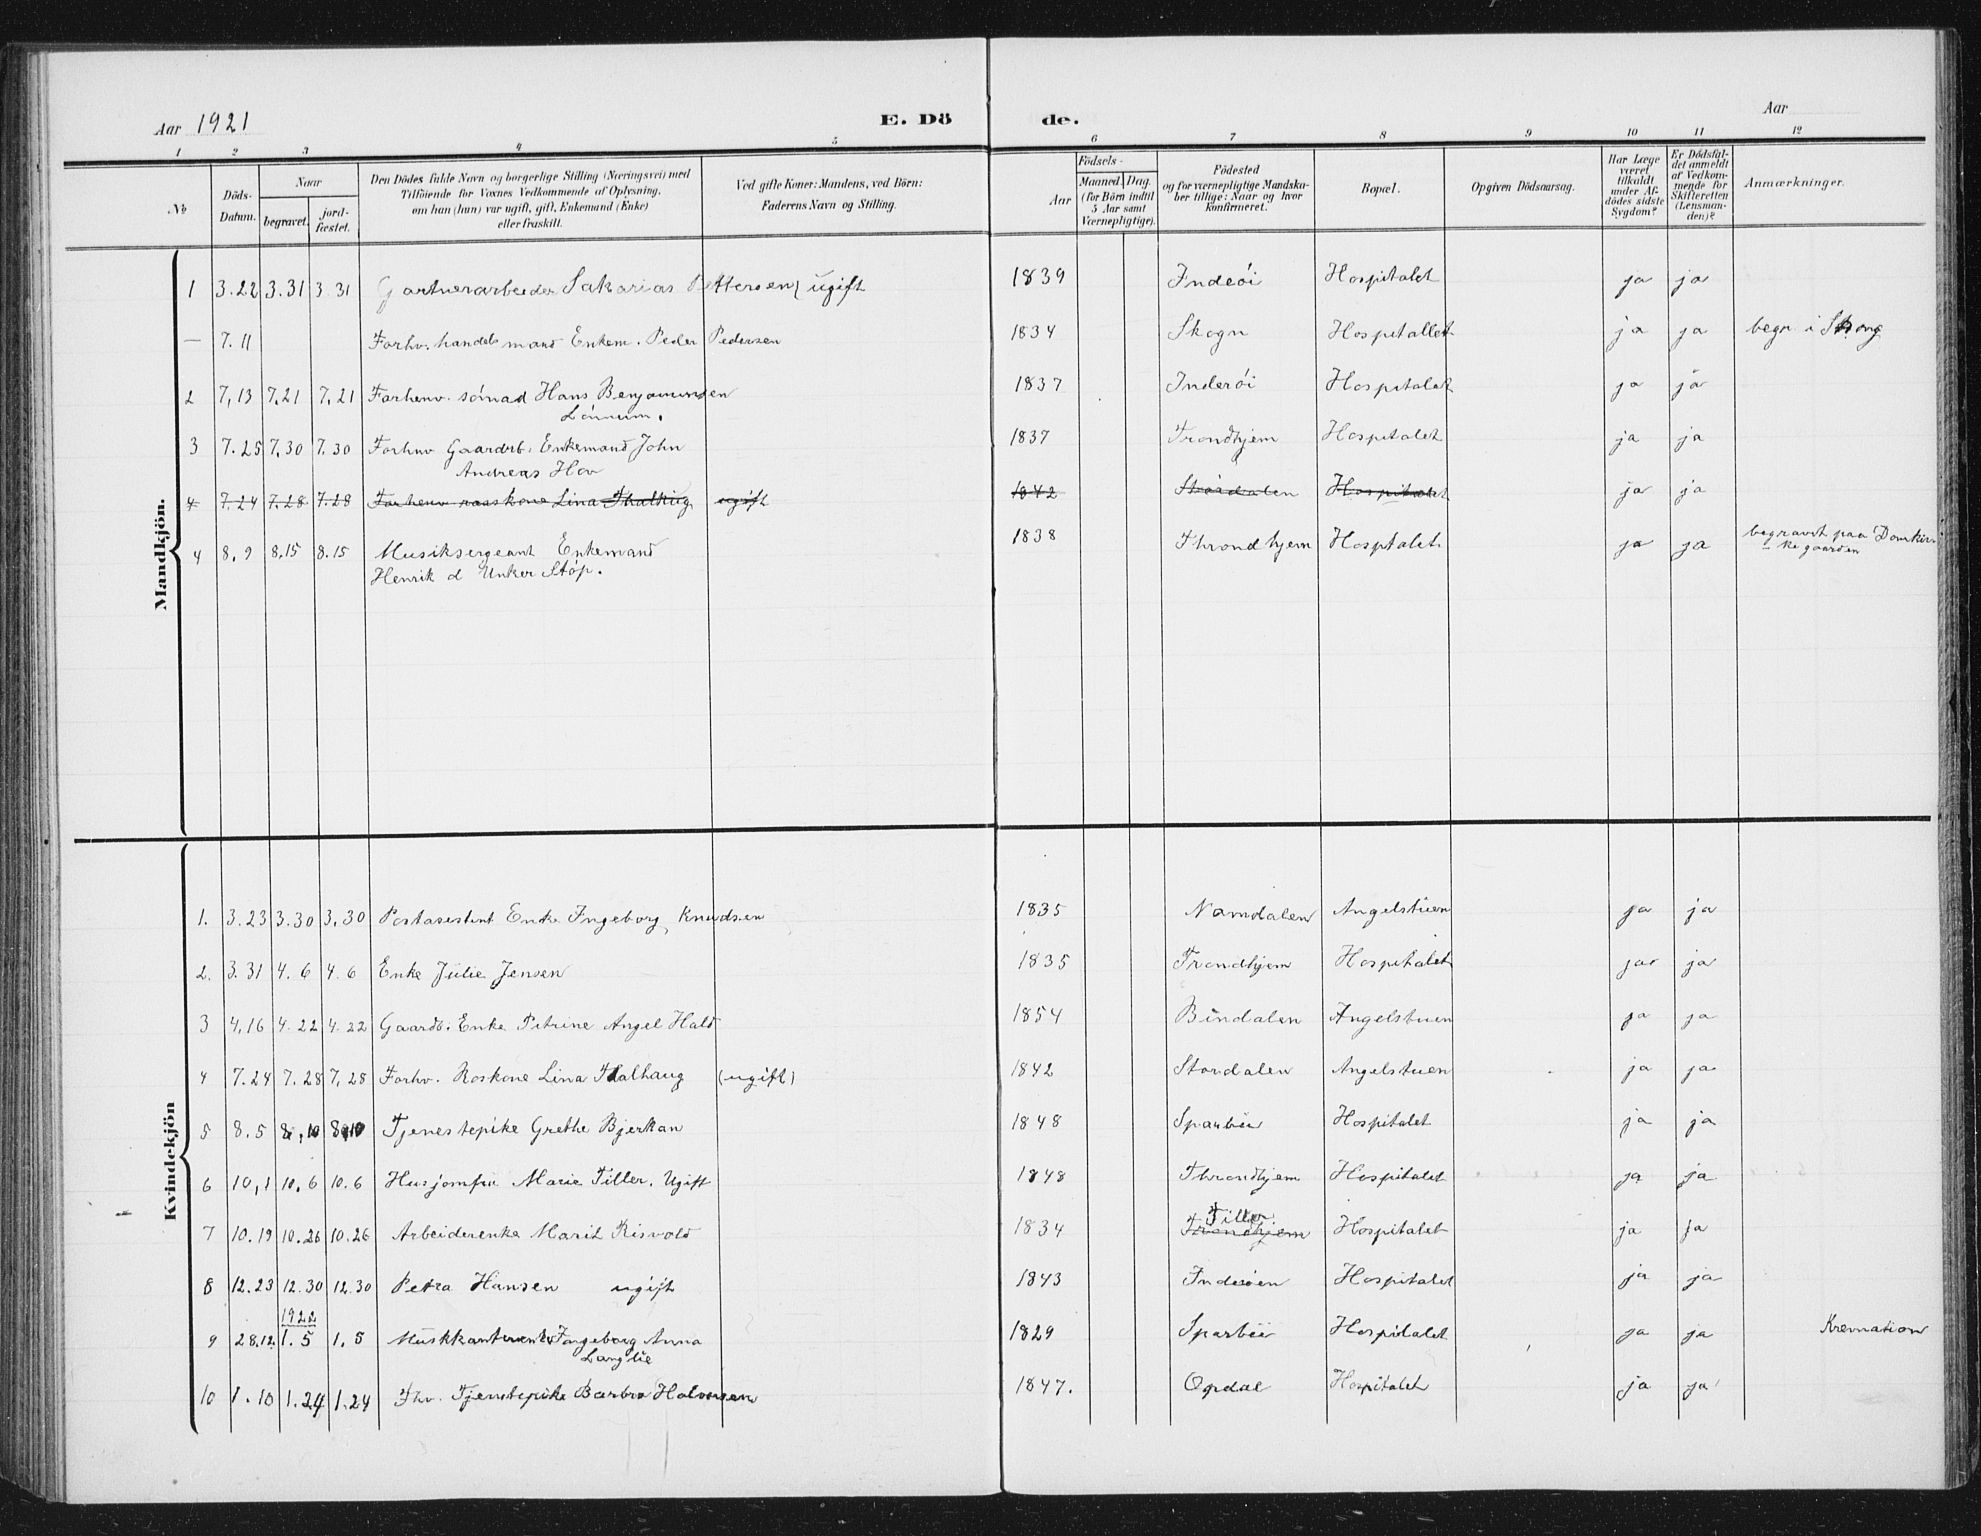 Aar 1921 E. Dö de. Aar
1 2 3 4 5 6 7 8 9 10 11 12
No
Döds-Datum.
Naar
begravet.
jord-fæstet.
Den Dödes fulde Navn og borgerlige Stilling (Næringsvei) med
Tilföiende for Voxnes Vedkommende af Oplysning,
om han (hun) var ugift, gift, Enkemand (Enke)
eller fraskilt.
Ved gifte Koner: Mandens, ved Börn:
Faderens Navn og Stilling.
Aar
Födsels-
Maaned. Dag.
(for Börn indtil
5 Aar samt
Værnepligtige).
Födested
og for værnepligtige Mandska-
ber tillige: Naar og hvor
konfirmeret.
Bopæl.
Opgiven Dödsaarsag.
Har Læge
været
tilkaldt
under Af-
dödes sidste
Sygdom?
Er Dödsfal-
det anmeldt
af Vedkom-
mende for
Skifteretten
(Lensman-
den)?
Anmærkninger.
Mandkjön.
1 3.22 3.31 3.31 Gartnerarbeider Sakarias Pettersen ugift 1839 Inderöi Hospitalet ja ja
— 7.11 Forhv. handelsmand Enkem. Peder Pedersen 1834 Skogn Hospitallet ja ja begr. i
2 7,13 7,21 7,21 Forhenv. sömad Hans Benjaminsen 1837 Inderöi Hospitalet ja ja
Lönnum.
3 7.25 7,30 7.30 Forhnv Gaardrb. Enkemand John 1837 Trondhjem Hospitalet ja ja
Andreas Hov
4 7.24 7.28 7.28 Forhenv Lina Thalhug ugift 1842 Stördalen Hospitalet ja ja
4 8.9 8.15 8.15 Musiksergeant Enkemand 1838 Throndhjem Hosptalet ja ja begravet paa Domkir-
Henrik d Unker Stöp. kegaarden
Kvindekjön
1. 3.23 3.30 3.30 Postasestent Enke Ingeborg Knudsen 1835 Namdalen Angelstuen ja ja
2. 3.31 4.6 4.6 Enke Julie Jensen 1835 Trondhjem Hospitalet ja ja
3 4,16 4.22 4.22 Gaardb. Enke Petrine Angel Hald 1854 Bindalen Angelstuen ja ja
4 7.24 7.28 7,28 Forhv. Roskone Lina Thalhaug (ugift) 1842 Stordalen Angelstuen ja ja
5 8.5 8,10 8,10 Tjenestepike Grethe Bjerkan 1848 Sparbu Hospitalet ja ja
6 10,1 10,6 10.6 Husjomfru Marie Tiller. Ugift 1848 Throndhjem Hospitalet ja ja
Tiller
7 10.19 10.26 10.26 Arbeiderenke Marit Risvold 1834 Trondhjem Hospitalet ja ja
8 12.23 12.30 12.30 Petra Hansen ugift 1843 Inderöen Hospitalet ja ja
1922
9 28.12. 1.5 1.5 Musikkantenenke Ingeborg Anna 1829 Sparbu Hospitalet ja ja Kremation
Langlie
10 1.10 1.24 1.24 Fhv. Tjenstepike Barbro Halvorsen 1847. Opdal Hospitalet ja ja